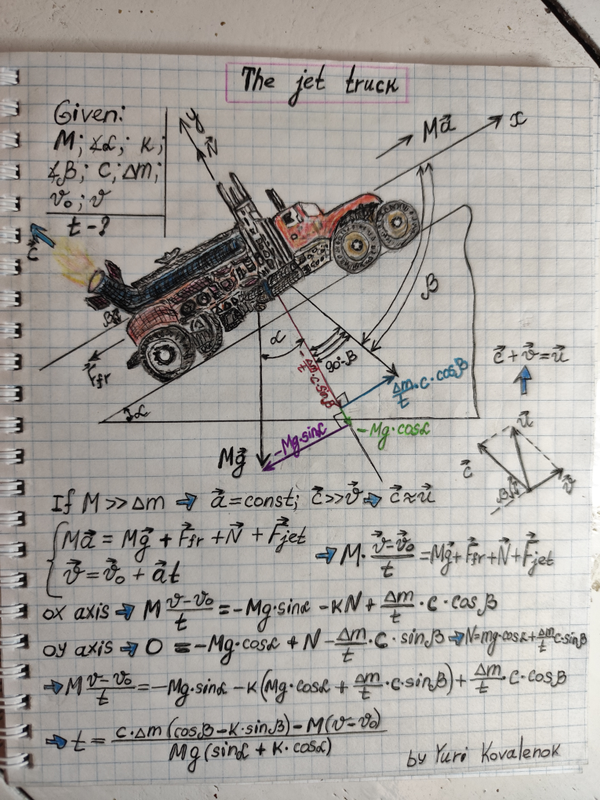 The jet truck
Given:
M; ∡α; к;
∡β; C; Δm;
v₀; v
t - ?
y
N⃗
Ma⃗
x
c⃗
β
β
F⃗fr
α
α
90°-β
-Δm/t·c·sinβ
Δm/t·c·cosβ
-Mg·sinα
-Mg·cosα
Mg⃗
c⃗ + v⃗ = u⃗
u⃗
c⃗
v⃗
β
If M >> Δm → a⃗ = const; c⃗ >> v⃗ → c⃗ ≈ u⃗
{ Ma⃗ = Mg⃗ + F⃗fr + N⃗ + F⃗jet
v⃗ = v⃗₀ + a⃗t
→ M· (v⃗-v⃗₀)/t = Mg⃗ + F⃗fr + N⃗ + F⃗jet
ox axis → M (v-v₀)/t = -Mg·sinα - кN + Δm/t · c · cosβ
oy axis → 0 = -Mg·cosα + N - Δm/t · c · sinβ → N = mg·cosα + Δm/t c·sinβ
→ M (v-v₀)/t = -Mg·sinα - к(Mg·cosα + Δm/t·c·sinβ) + Δm/t·c·cosβ
→ t = (c·Δm(cosβ - к·sinβ) - M(v-v₀))/(Mg(sinα + к·cosα))
by Yuri Kovalenok